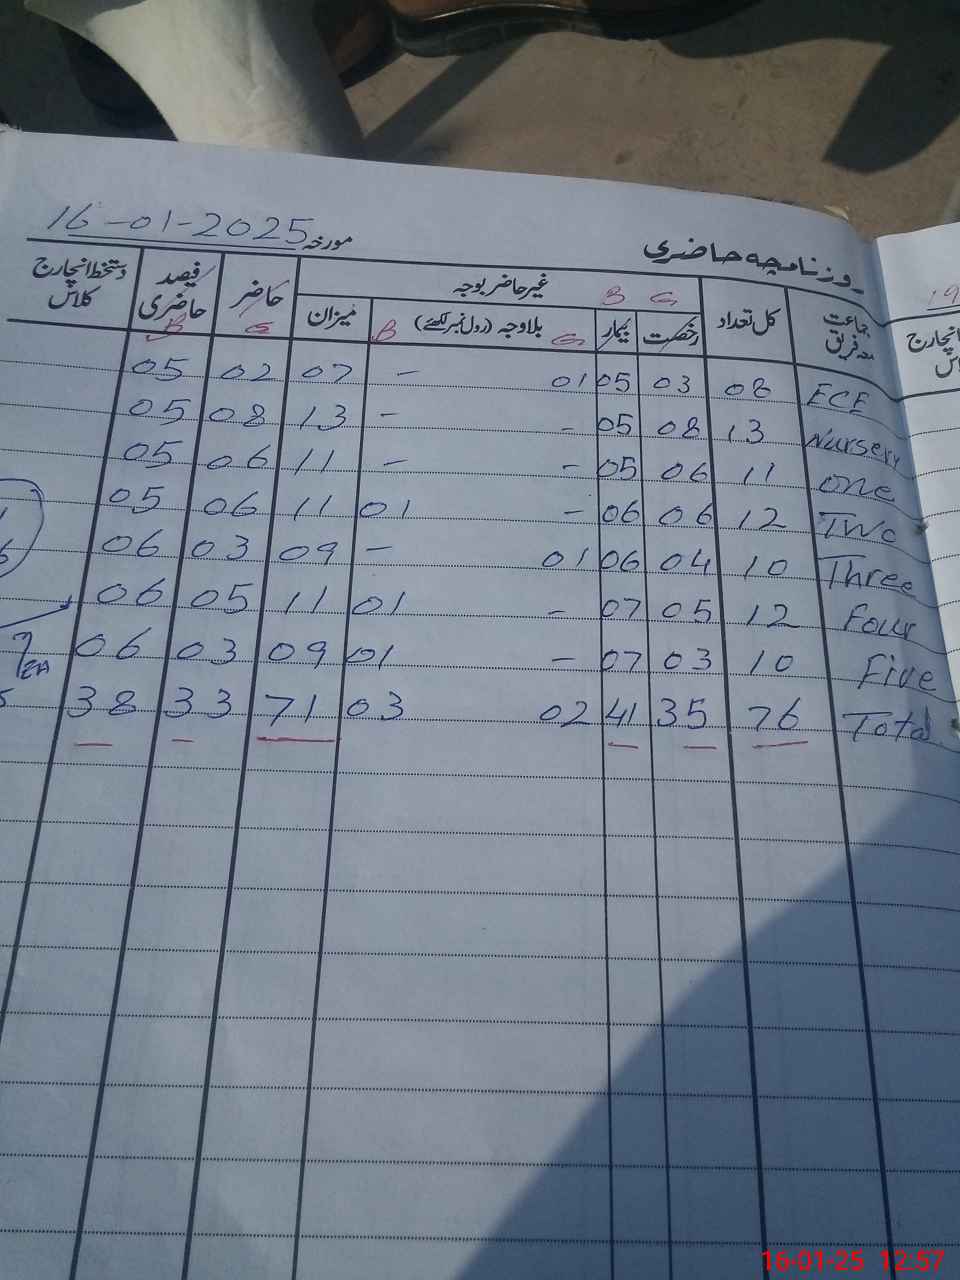 روزنامچہ حاضری
مورخہ 16-01-2025
جماعت معہ فریق کل تعداد غیر حاضر بوجہ B G حاضر G فیصد حاضری B دستخط انچارج کلاس
رخصت بیمار G بلاوجہ (رول نمبر لکھئے) B میزان
ECE 08 03 05 01 – 07 02 05
Nursery 13 08 05 – – 13 08 05
one 11 06 05 – – 11 06 05
Two 12 06 06 – 01 11 06 05
Three 10 04 06 01 – 09 03 06
Four 12 05 07 – 01 11 05 06
Five 10 03 07 – 01 09 03 06
Total 76 35 41 02 03 71 33 38
19
انچارج
16-01-25 12:57